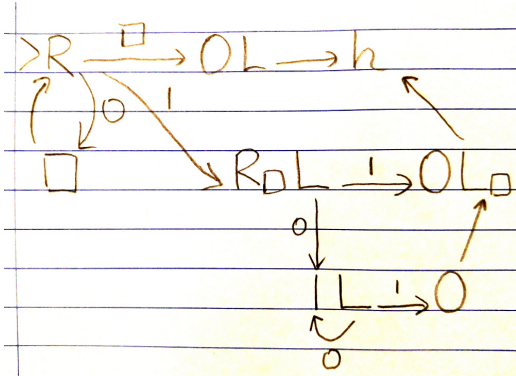 >R □→ OL → h
0 1
□ R□L 1→ OL□
0
1L 1→ O
0